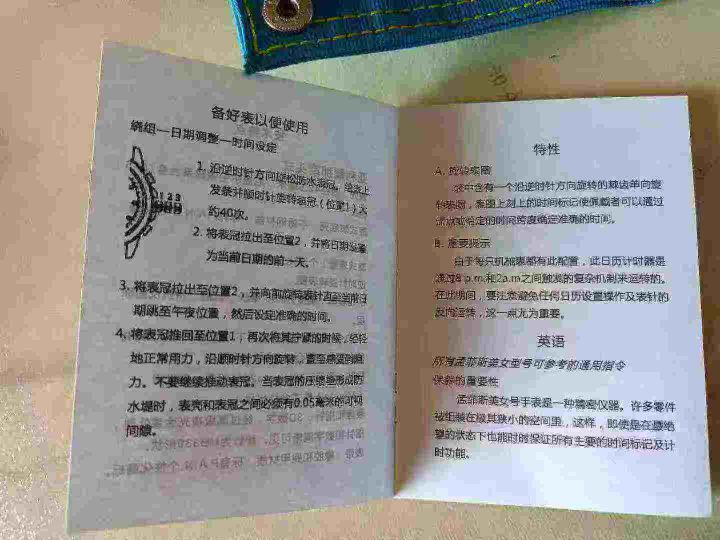 备好表以便使用
绕组—日期调整—时间设定
1 2 3
1. 沿逆时针方向旋松防水表冠。给表上
发条并顺时针旋转表冠（位置1）大
约40次。
2. 将表冠拉出至位置2，并将日期设置
为当前日期的前一天。
3. 将表冠拉出至位置2，并向前旋转表针直至当前日
期跳至午夜位置，然后设定准确的时间。
4. 将表冠推回至位置1，再次将其拧紧的时候，轻轻
地正常用力，沿顺时针方向旋转，直至感觉到阻
力。不要继续推动表冠。当表冠的压缩垫形成防
水堤时，表壳和表冠之间必须有0.05毫米的可视
间隙。
特性
A. 旋转表圈
这中含有一个沿逆时针方向旋转的棘齿单向旋
转表圈，表圈上刻上的时间标记使佩戴者可以通过
给定的时间跨度确定准确的时间。
B. 重要提示
由于每只机械表都有此配置，此日历计时器是
通过8 p.m.和2a.m之间触发的复杂机制来运转的。
在此期间，要注意避免任何日历设置操作及表针的
反向运转，这一点尤为重要。
英语
所有孟菲斯美女型号可参考的通用指令
保养的重要性
孟菲斯美女号手表是一种精密仪器。许多零件
被组装在极其狭小的空间里，这样，即使是在最绝
望的状态下也能时时保证所有主要的时间标记及计
时功能。